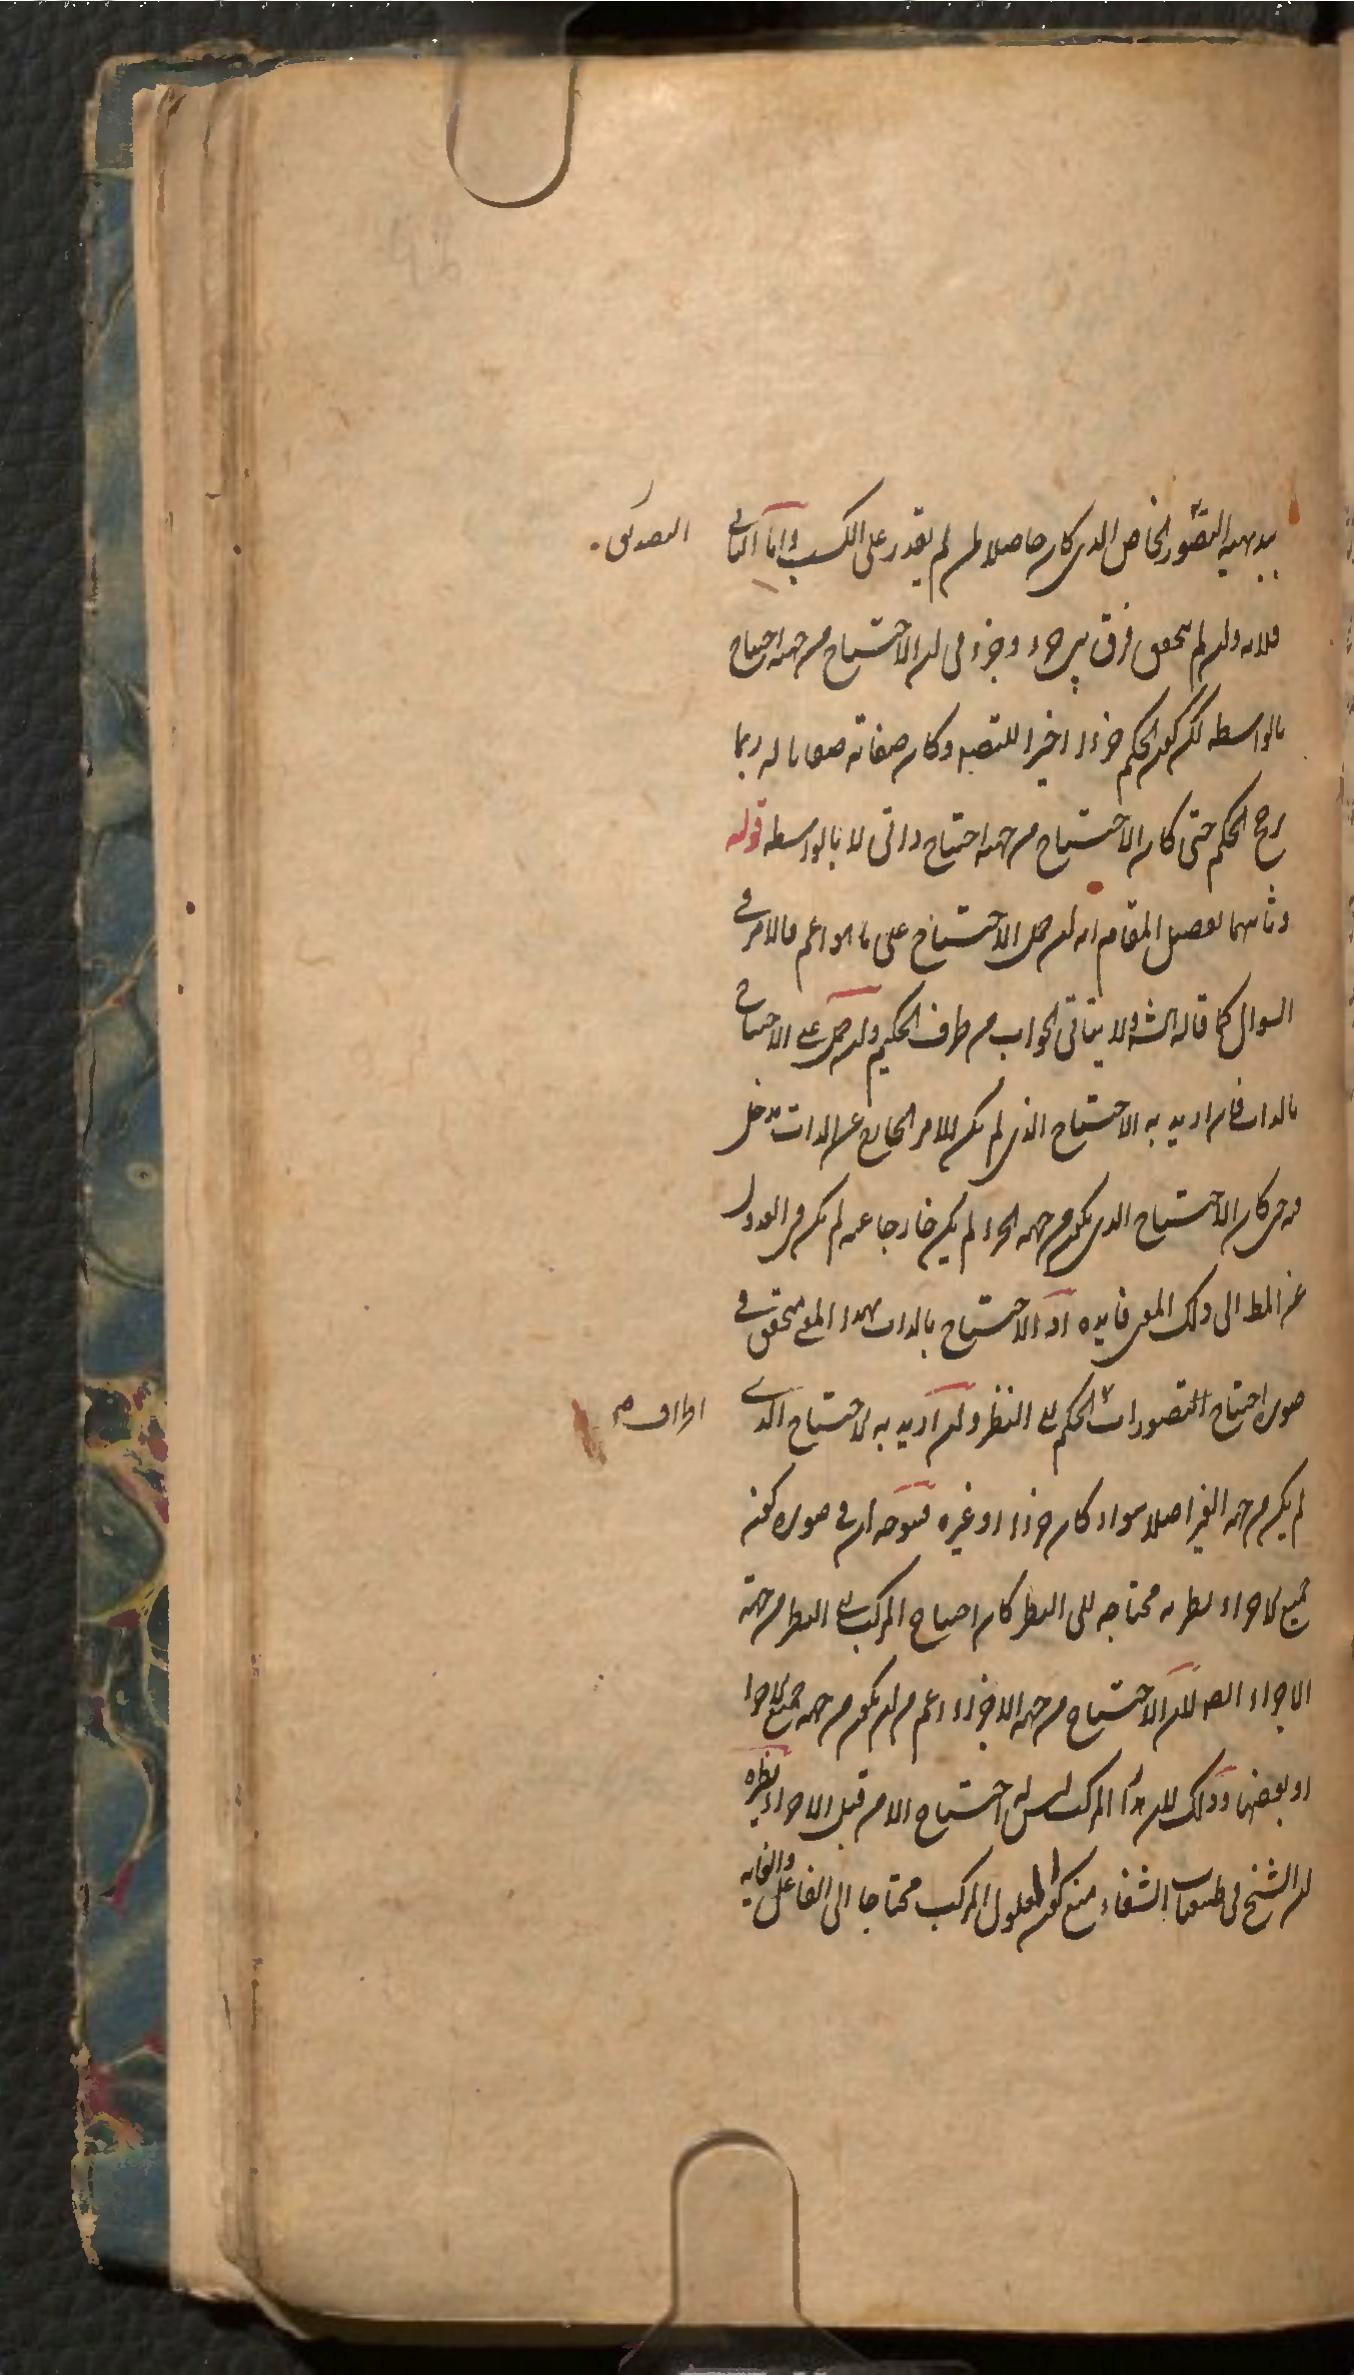 بديهية التصور الخاص الذى كان حاصلا لمن لم يقدر على الكسب واما الثانى
التصديق
فلانه وان لم يتحقق فرق بين جزء وجزء فى ان الاحتياج من جهته احتياج
بالواسطة لكن كون الحكم جزءا اخيرا للتصديق وكان صفاته صفاتا له ربما
رجح الحكم حتى كان الاحتياج من جهته احتياج ذاتى لا بالواسطه قوله
وثانيهما تفصيل المقام انه ان حمل الاحتياج على ما هو اعم فالامر فى
السوال كما قاله الش ولا يتاتى الجواب من طرف الحكيم وان حمل على الاحتياج
بالذات فان اريد به الاحتياج الذى لم يكن للامر الخارج عن الذات مدخل
فيه حتى كان الاحتياج الذى يكون من جهة الجزء لم يكن خارجا عنه لم يكن فى العدول
عن المط الى ذلك المعنى فايده اذ الاحتياج بالذات بهذا المعنى متحقق فى
صورة احتياج التصورات الحكم الى النظر وان اريد به الاحتياج الذى
اطراف صح
لم يكن من جهة الغير اصلا سواء كان جزءا او غيره فيتوجه ان فى صورة كون
جميع الاجزاء نظرية محتاجه الى النظر كان احتياج المركب الى النظر من جهة
الاجزاء لان الاحتياج من جهة الاجزاء اعم من ان يكون من جهة جميع الاجزا
او بعضها وذلك لان هذا المركب ليس له احتياج الا من قبل الاجزاء نظيره
ان الشيخ فى طبيعيات الشفاء منع كون المعلول المركب محتاجا الى الفاعل والغاية